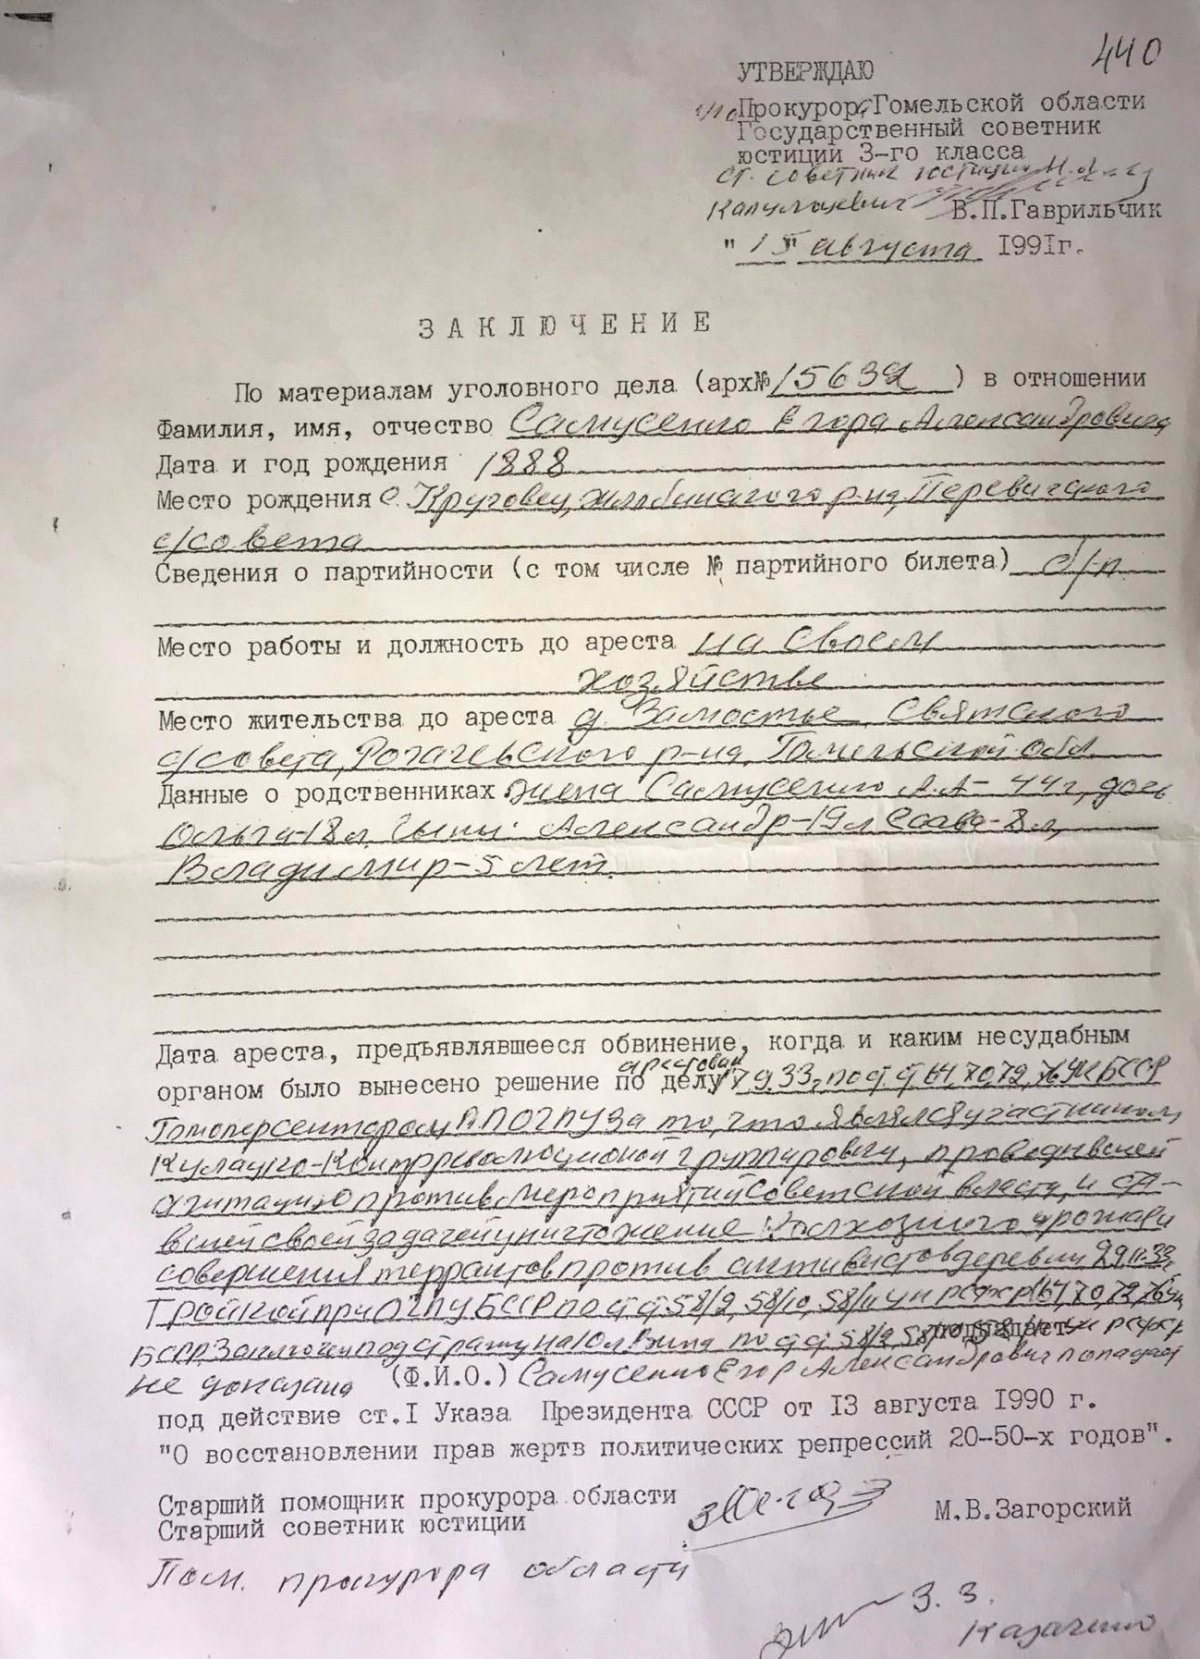 440
УТВЕРЖДАЮ
Прокурор Гомельской области
Государственный советник
юстиции 3-го класса
ст. советник юстиции
В.П.Гаврильчик
"15" августа 1991г.
ЗАКЛЮЧЕНИЕ
По материалам уголовного дела (арх№ 15632) в отношении
Фамилия, имя, отчество Самусенко Егора Александровича
Дата и год рождения 1888
Место рождения с. Круговец, Жлобинского р-на, Перевичского
с/совета
Сведения о партийности (с том числе № партийного билета) б/п
Место работы и должность до ареста на своем
хозяйстве
Место жительства до ареста д. Замостье, Святского
с/совета, Рогачевского р-на, Гомельской обл.
Данные о родственниках жена Самусенко А.А - 44г, дочь
Ольга-18л, сыны: Александр-19л Савва-8л,
Владимир-5 лет.
Дата ареста, предъявлявшееся обвинение, когда и каким несудабным
арестован
органом было вынесено решение по делу 9.33, по ст.ст 64,70,72,76 УК БССР
за то, что являлся участником
Кулацко-Контрреволюционой группировки, проводившей
агитацию против мероприятий советской власти, и ста-
вшей своей задачей уничтожение колхозного урожая
совершения террактов против активистов деревни 29.11.33,
Тройкой при ОГПУ БССР по ст.ст 58/2, 58/10, 58/11 ук рсфср (64,70,72,76 ук
БССР) Заключен под стражу на 10л Вина по ст.ст 58/2, 58/10, 58/11 ук рсфср
не доказана (Ф.И.О.) Самусенко Егор Александрович попадает
под действие ст.I Указа Президента СССР от 13 августа 1990 г.
"О восстановлении прав жертв политических репрессий 20-50-х годов".
Старший помощник прокурора области
Старший советник юстиции
М.В.Загорский
Пом. прокурора области
З. З.
Казаченко